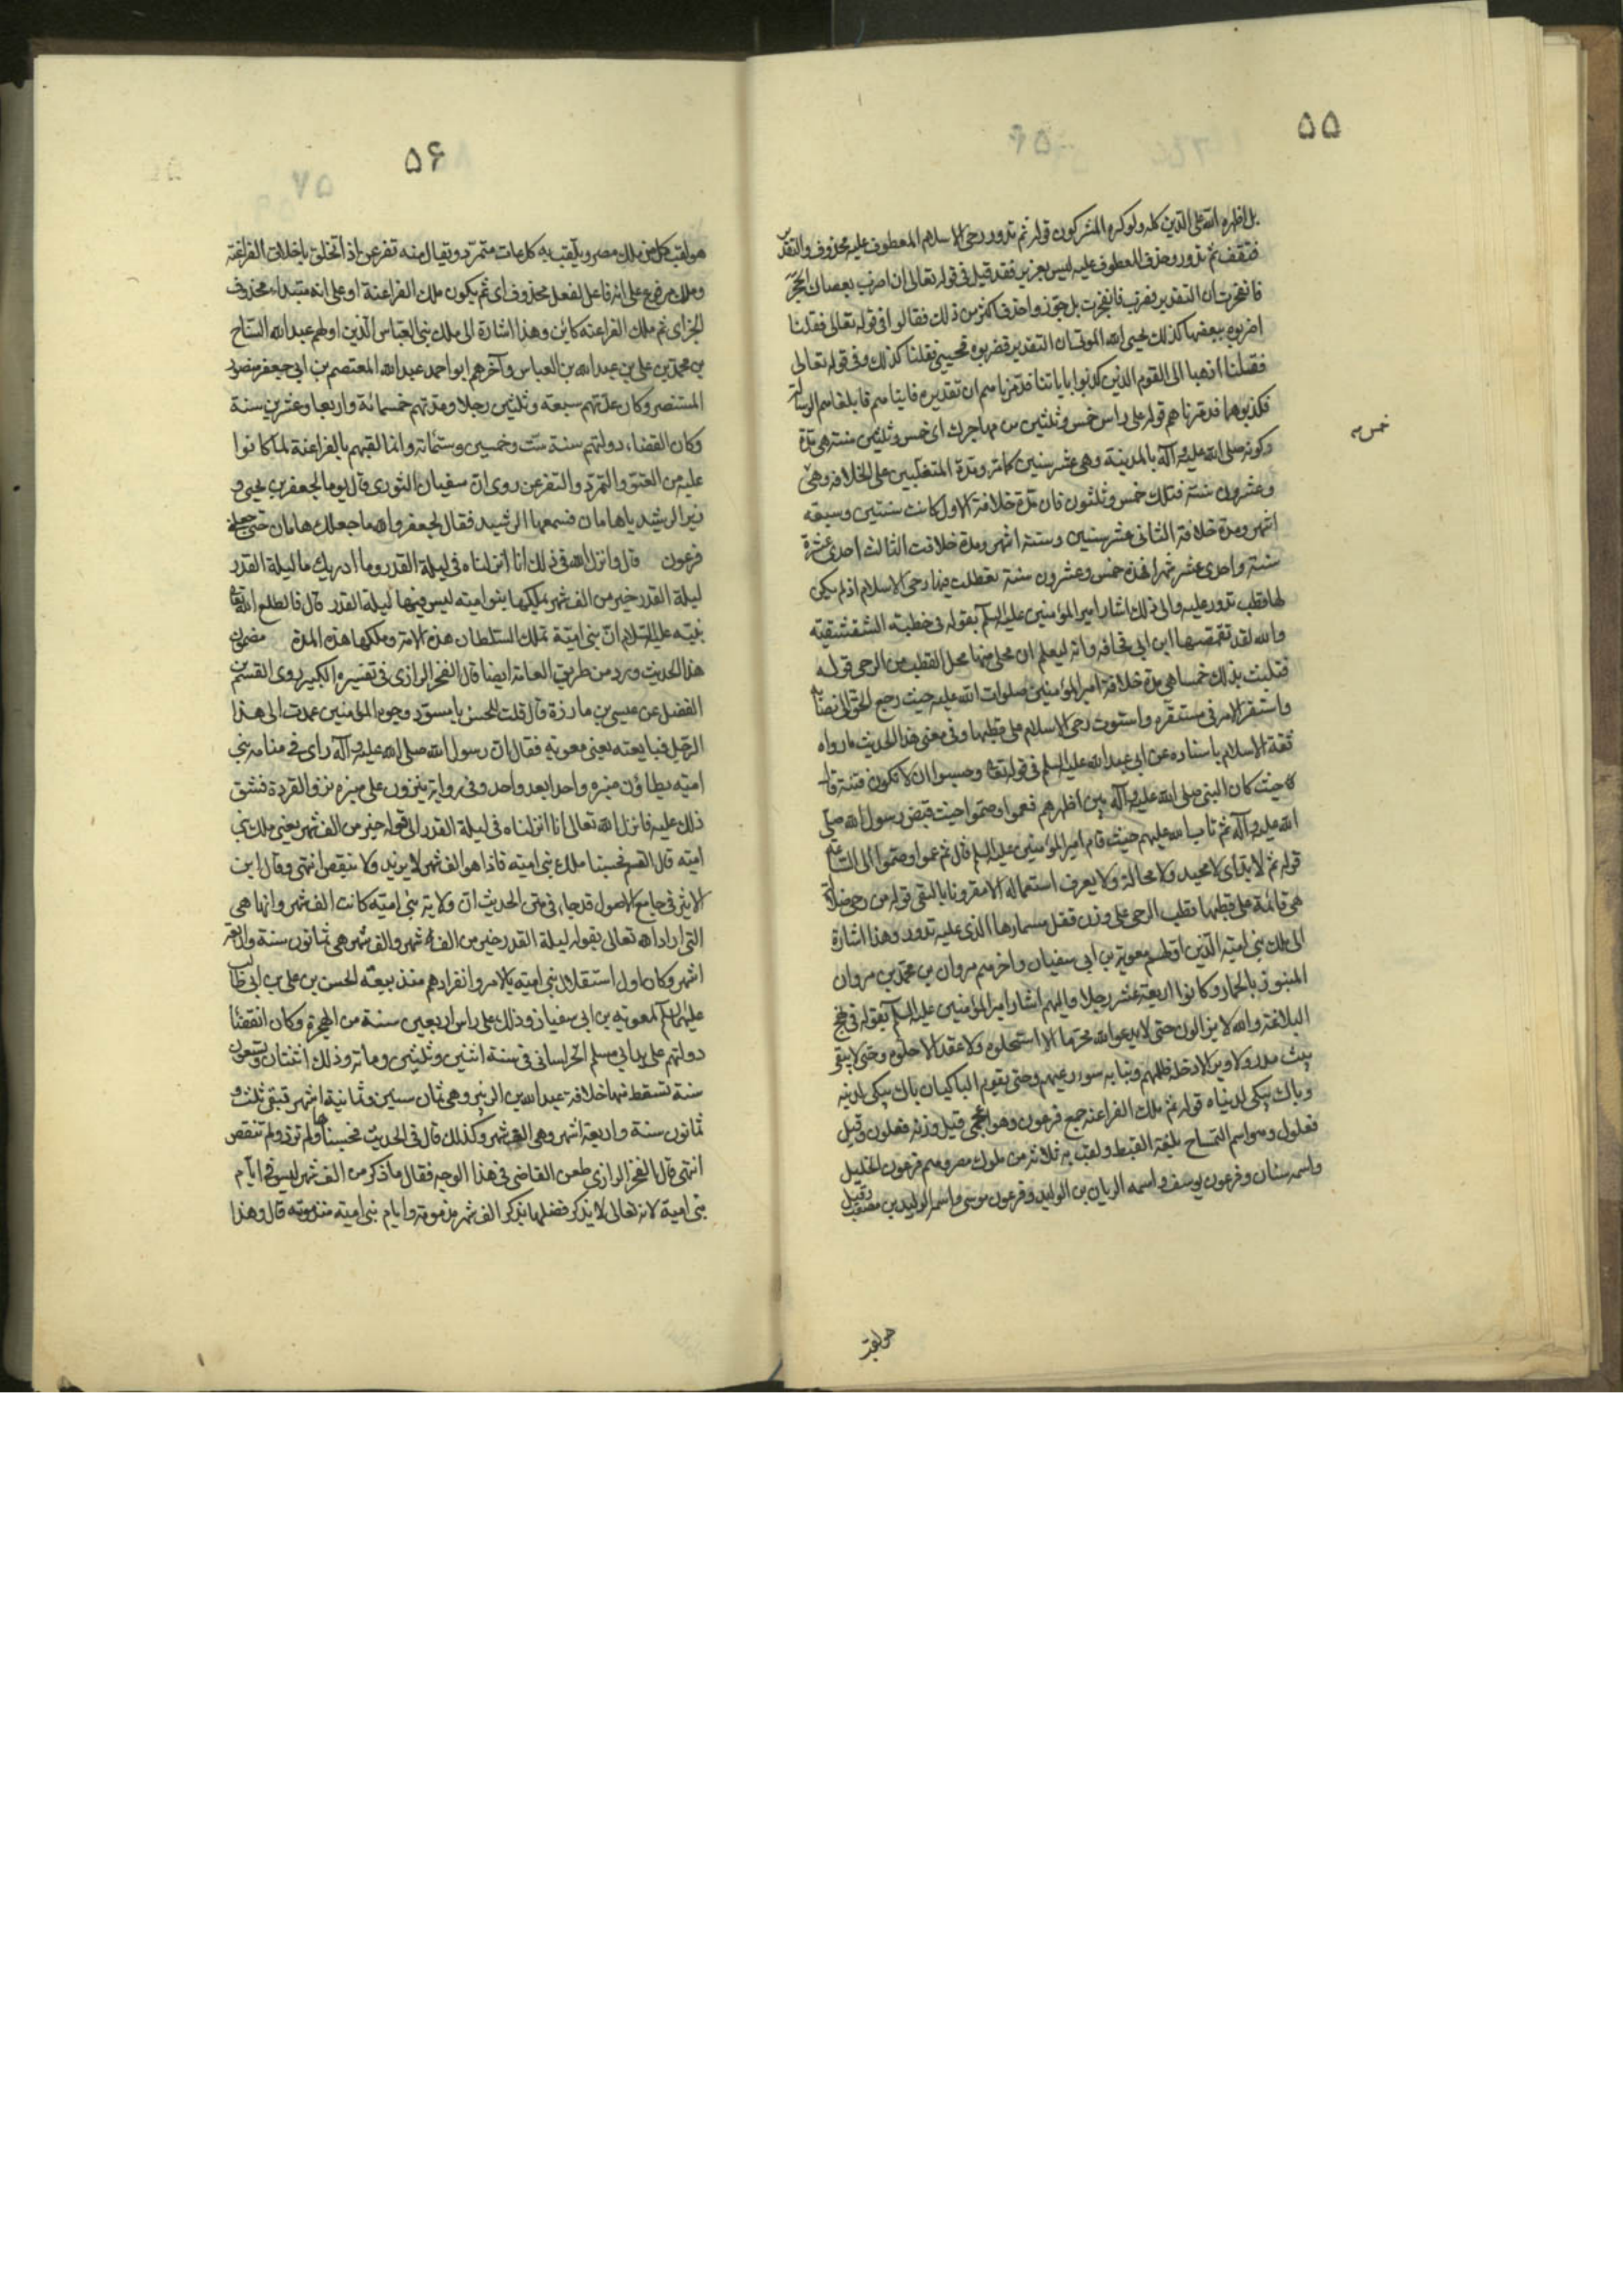 ۵۵
بل اظهره الله على الدين كله ولو كره المشركون قوله ثم تدور رحى الاسلام المعطوف عليه محذوف والتقدير
فتقف ثم تدور وحذف المعطوف عليه ليس بعزيز فقد قيل فى قوله تعالى ان اضرب بعصاك الحجر
فانفجرت ان التقدير فضرب فانفجرت بل جوز واحذف اكثر من ذلك فقالوا فى قوله تعالى فقلنا
اضربوه ببعضها كذلك يحيى الله الموتى ان التقدير فضربوه فحيى فقلنا كذلك وفى قوله تعالى
فقلنا اذهبا الى القوم الذين كذبوا باياتنا فدمرناهم ان تقديره فاتياهم فابلغاهم الرسالة
فكذبوهما فدمرناهم قوله على راس خمس وثلثين من مهاجرك اى خمس وثلثين سنة هى مدة
خمس
وكونه صلى الله عليه وآله بالمدينة وهى عشر سنين كاملة ومدة المتغلبين على الخلافة وهى
وعشرون سنة فتلك خمس وثلثون فان مدة خلافة الاول كانت سنتين وسبعة
اشهر ومدة خلافة الثانى عشر سنين وستة اشهر ومدة خلافة الثالث احدى عشرة
سنة واحدى عشر شهرا فهذه خمس وعشرون سنة تعطلت فيها رحى الاسلام اذ لم يكن
لها قطب تدور عليه والى ذلك اشار امير المؤمنين عليه السلم بقوله فى خطبة الشقشقية
والله لقد تقمصها ابن ابى قحافه وانه ليعلم ان محلى منها محل القطب من الرحى قوله
فتلبث بذلك خمسا هى مدة خلافة امير المؤمنين صلوات الله عليه حيث رجع الحق الى نصابه
واستقر الامر فى مستقره واستوت رحى الاسلام على قطبها وفى معنى هذا الحديث ما رواه
ثقة الاسلام باسناده عن ابى عبد الله عليه السلم فى قوله تعالى وحسبوا ان لا تكون فتنة قال
حيث كان النبى صلى الله عليه وآله بين اظهرهم فعموا وصموا حيث قبض رسول الله صلى
الله عليه وآله ثم تاب الله عليهم حيث قام امير المؤمنين عليه السلم قال ثم عموا وصموا الى الساعة
قوله ثم لا بد اى لا محيد ولا محالة ولا يعرف استعماله الا مقرونا بالنفى قوله من رحى ضلالة
هى قائمة على قطبها قطب الرحى على وزن قفل مسمارها الذى عليه تدور وهذا اشارة
الى ملك بنى امية الذين اولهم معوية بن ابى سفيان واخرهم مروان بن محمد بن مروان
المنبوز بالحمار وكانوا اربعة عشر رجلا واليهم اشار امير المؤمنين عليه السلم بقوله فى نهج
البلاغة والله لا يزالون حتى لا يدعوا لله محرما الا استحلوه ولا عقدا الا حلوه وحتى لا يبقى
بيت مدر ولا وبر الا دخله ظلمهم ونبا به سوء رعيهم وحتى يقوم الباكيان باك يبكى لدينه
وباك يبكى لدنياه قوله ثم ملك الفراعنة جمع فرعون وهو اعجمى قيل وزنه فعلون وقيل
فعلول وهو اسم التمساح بلغة القبط ولقب به ثلاثة من ملوك مصر وهم فرعون الخليل
واسمه سنان وفرعون يوسف واسمه الريان بن الوليد وفرعون موسى واسمه الوليد بن مصعب وقيل
هو لقب
۵۶
هو لقب كل من ملك مصر ويلقب به كل عات متمرد ويقال منه تفرعن اذا تخلق باخلاق الفراعنة
وملك مرفوع على انه فاعل لفعل محذوف اى ثم يكون ملك الفراعنة او على انه مبتدا محذوف
الخبر اى ثم ملك الفراعنه كاين وهذا اشارة الى ملك بنى العباس الذين اولهم عبد الله السفاح
بن محمد بن على بن عبد الله بن العباس وآخرهم ابو احمد عبد الله المعتصم بن ابى جعفر منصور
المستنصر وكان عدتهم سبعة وثلثين رجلا ومدتهم خمسمائة واربعا وعشرين سنة
وكان انقضاء دولتهم سنة ست وخمسين وستمائة وانما لقبهم بالفراعنة لما كانوا
عليه من العتو والتمرد والتفرعن روى ان سفيان الثورى قال يوما لجعفر بن يحيى و
زير الرشيد ياهامان فسمعها الرشيد فقال لجعفر والله ما جعلك هامان حتى جعلنى
فرعون قال وانزل الله فى ذلك انا انزلناه فى ليلة القدر وما ادريك ما ليلة القدر
ليلة القدر خير من الف شهر يملكها بنو اميه ليس فيها ليلة القدر قال فاطلع الله تعالى
نبيه عليه السلام ان بنى امية تملك السلطان هذه الامة وملكها هذه المدة مضمون
هذا الحديث ورد من طريق العامة ايضا قال الفخر الرازى فى تفسيره الكبير روى القسم بن
الفضل عن عيسى بن مارزة قال قلت للحسن يا مسود وجوه المؤمنين عمدت الى هذا
الرجل فبايعته يعنى معوية فقال ان رسول الله صلى الله عليه وآله راى فى منامه بنى
اميه يطاؤن منبره واحدا بعد واحد وفى رواية ينزون على منبره نزو القردة فشق
ذلك عليه فانزل الله تعالى انا انزلناه فى ليلة القدر الى قوله خير من الف شهر يعنى ملك بنى
اميه قال القسم فحسبنا ملك بنى اميه فاذا هو الف شهر لا يزيد ولا ينقص انتهى وقال ابن
الاثير فى جامع الاصول قد جاء فى متن الحديث ان ولاية بنى امية كانت الف شهر وانها هى
التى اراد الله تعالى بقوله ليلة القدر خير من الف شهر والف شهر هى ثمانون سنة واربعة
اشهر وكان اول استقلال بنى اميه بالامر وانفرادهم منذ بيعة الحسن بن على بن ابى طالب
عليهما السلم لمعوية بن ابى سفيان وذلك على راس اربعين سنة من الهجرة وكان انقضاء
دولتهم على يد ابى مسلم الخراسانى فى سنة اثنين وثلثين ومائة وذلك اثنتان وتسعون
سنة تسقط منها خلافة عبد الله بن الزبير وهى ثمان سنين وثمانية اشهر فتبقى ثلث و
ثمانون سنة واربعة اشهر وهى الف شهر وكذلك قال فى الحديث فحسبناها ولم تزد ولم تنقص
انتهى قال الفخر الرازى طعن القاضى فى هذا الوجه فقال ما ذكر من الف شهر ليس فى ايام
بنى امية لانه تعالى لا يذكر فضلها بذكر الف شهر مذمومة وايام بنى امية مذمومة قال وهذا